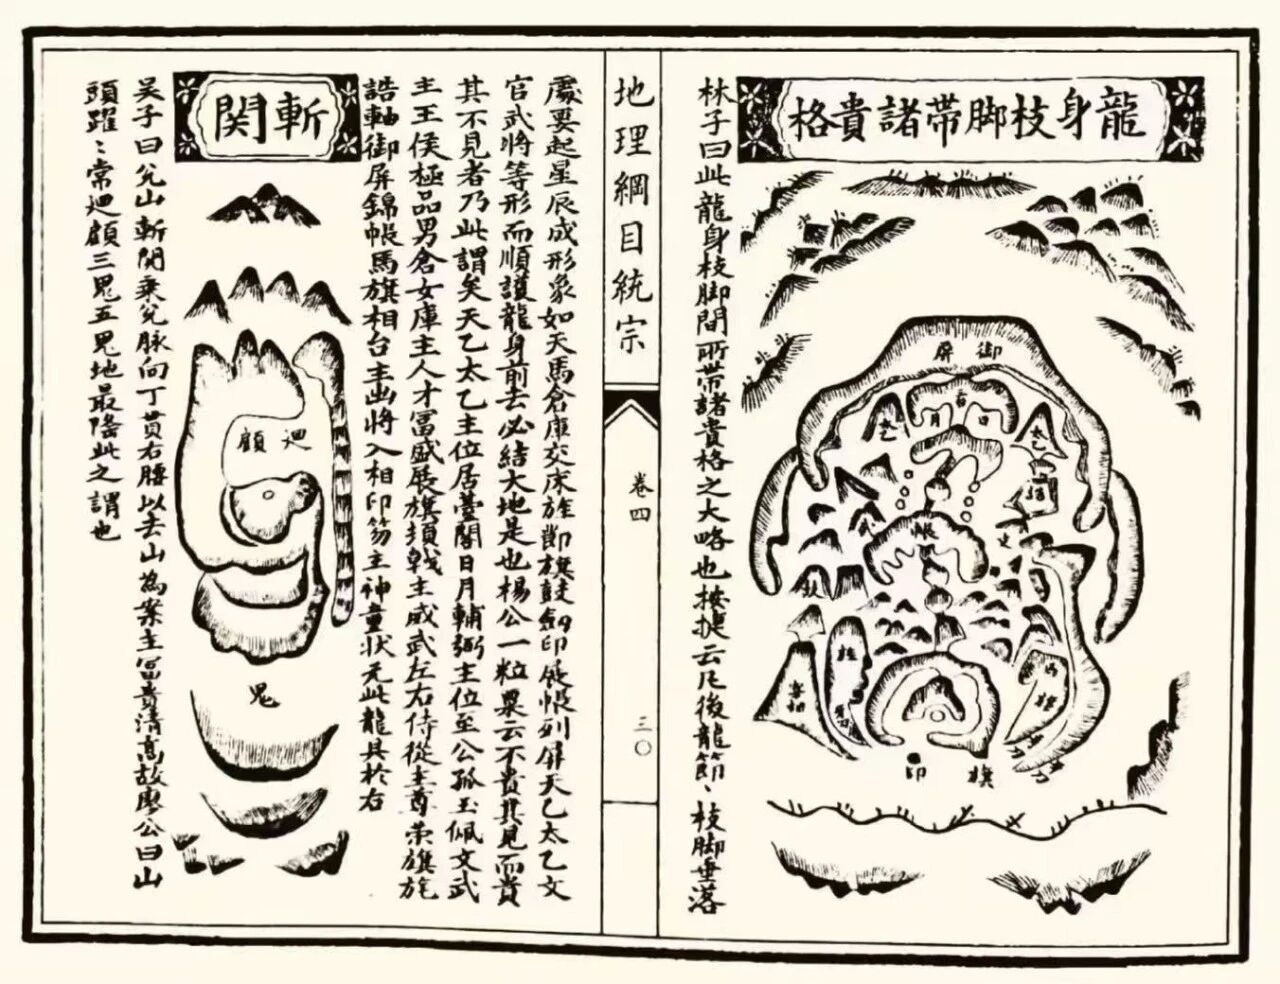 龍身枝脚帶諸貴格
御屏
日月
太乙
帳
旗
印
林子曰此龍身枝脚間所帶諸貴格之大略也按云凡後龍節〻枝脚垂落
地理綱目統宗
卷四
三〇
處要起星辰成形象如天馬倉庫交床旌節旗鼓劒印展帳列屏天乙太乙文
官武將等形而順護龍身前去必結大地是也楊公一粒粟云不貴其見而貴
其不見者乃此謂矣天乙太乙主位居臺閣日月輔弼主位至公孤玉佩文武
主王侯極品男倉女庫主人才冨盛展旗頓戟主威武左右侍從主尊崇旗旄
誥軸御屏錦帳馬旗相台主出將入相印笏主神童狀元此龍具於右
斬関
迴顧
鬼
吴子曰兊山斬関乘兊脉向丁貫右腰以去山為案主冨貴清高故廖公曰山
頭躍〻常迴顧三鬼五鬼地最隆此之謂也